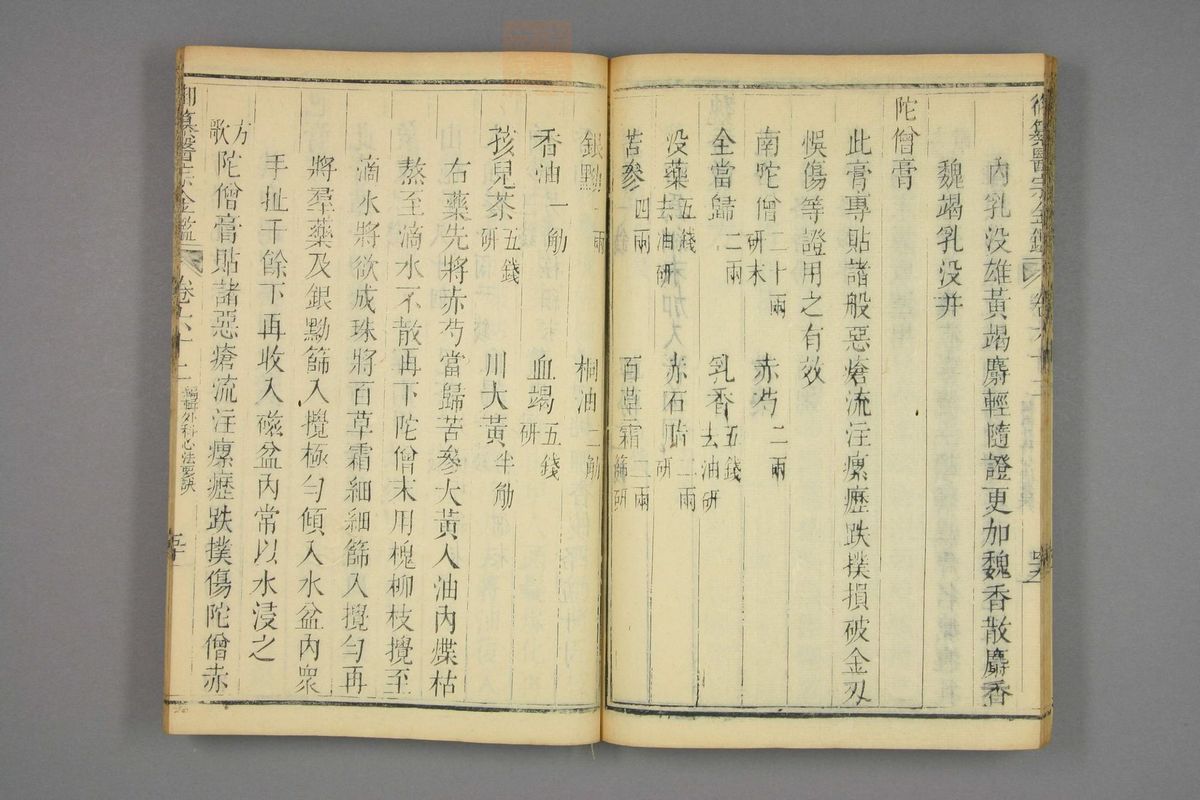 內乳没雄黃竭麝輕隨證更加魏香散麝香
魏竭乳没并
陀僧膏
此膏專貼諸般惡瘡流注瘰癧跌撲損破金刃
悞傷等證用之有效
南陀僧二十兩研末 赤芍二兩
全當歸二兩 乳香五錢去油研
没藥五錢去油研 赤石脂二兩研
苦參四兩 百草霜二兩篩研
銀黝一兩 桐油二觔
香油一觔 血竭五錢研
孩兒茶五錢研 川大黃半觔
右藥先將赤芍當歸苦參大黃入油內煠枯
熬至滴水不散再下陀僧末用槐柳枝攪至
滴水將欲成珠將百草霜細細篩入攪勻再
將羣藥及銀黝篩入攪極勻傾入水盆內衆
手扯千餘下再收入磁盆內常以水浸之
方歌 陀僧膏貼諸惡瘡流注瘰癧跌撲傷陀僧赤
御纂醫宗金鑑 卷六十二 編輯外科心法要訣